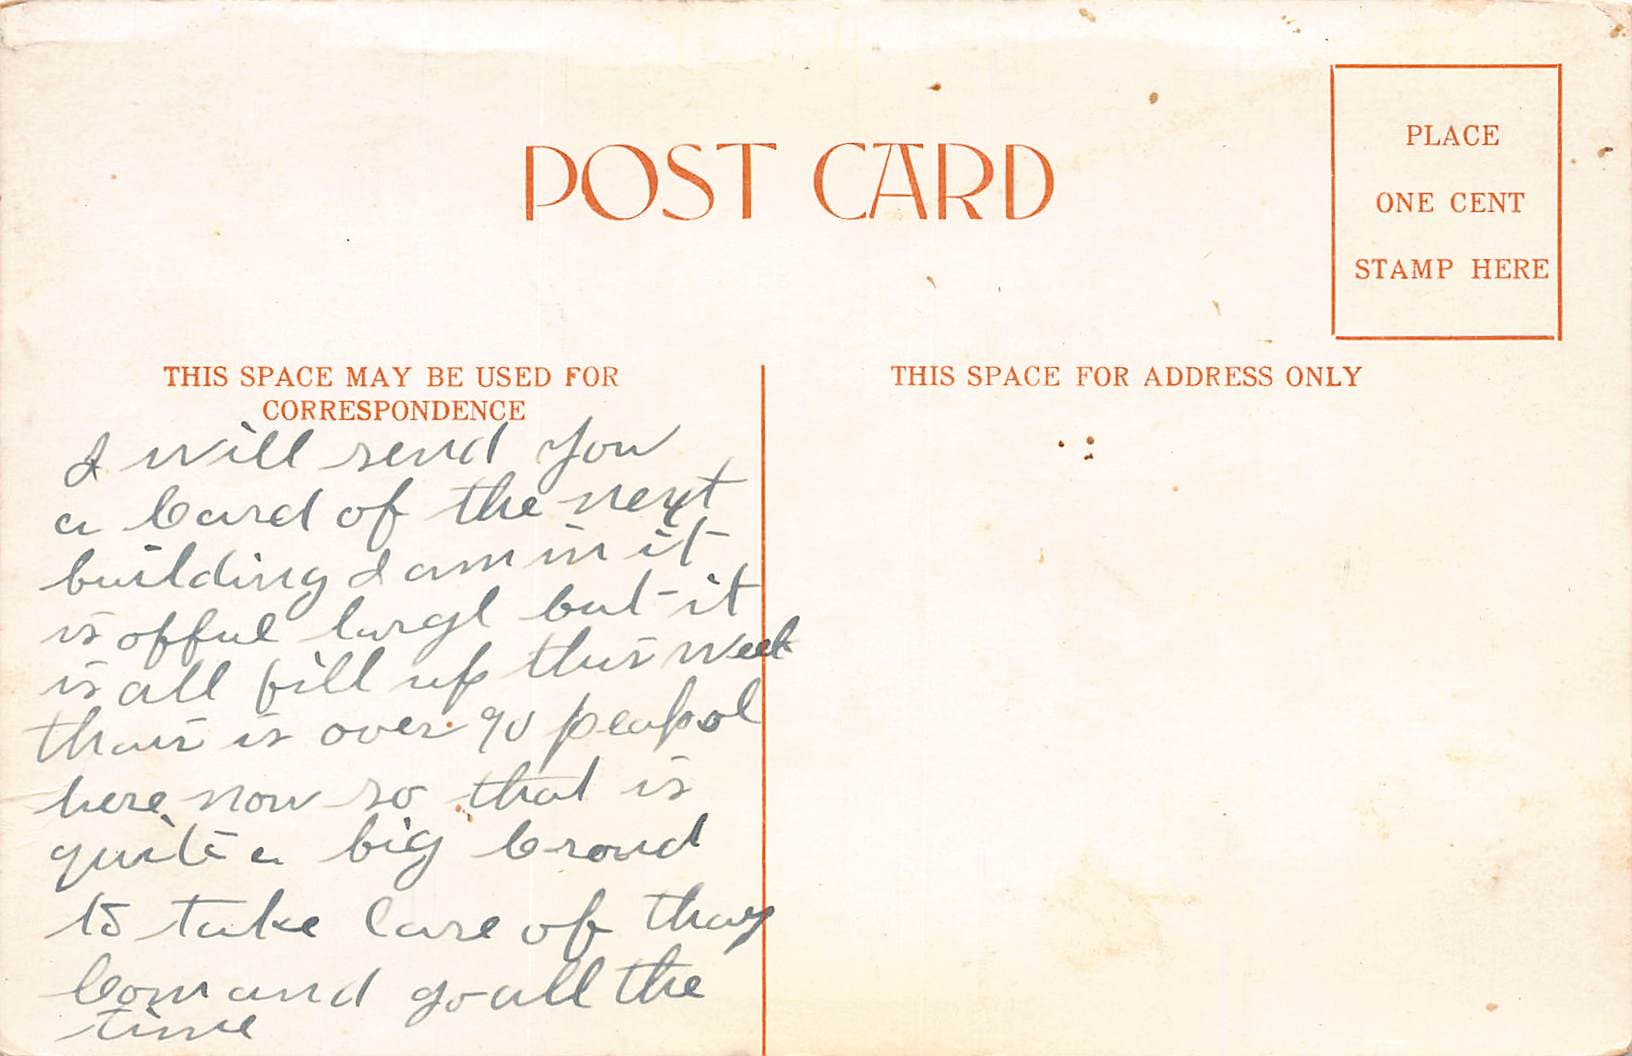 POST CARD
PLACE
ONE CENT
STAMP HERE
THIS SPACE MAY BE USED FOR
CORRESPONDENCE
THIS SPACE FOR ADDRESS ONLY
I will send you
a Card of the next
building I am in it
is offul largl but it
is all fill up this week
thair is over 90 peapol
here now so that is
quite a big Croud
to take Care of thay
Com and go all the
time